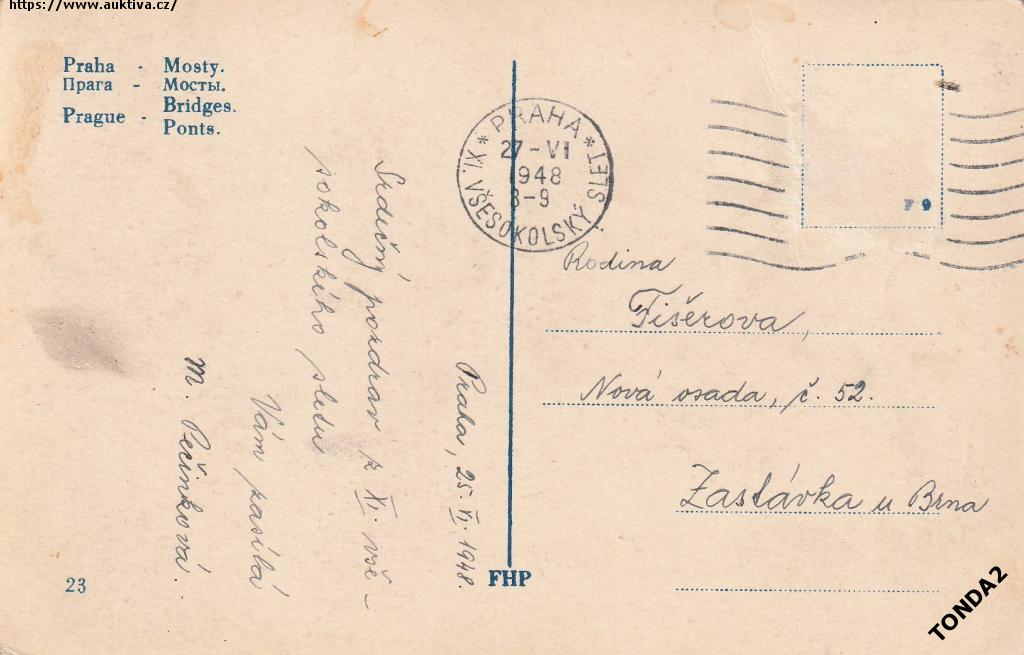 https://www.auktiva.cz/
Praha - Mosty.
Прага - Мосты.
Prague - Bridges.
Ponts.
PRAHA
27-VI
1948
8-9
* XI. VŠESOKOLSKÝ SLET *
F 9
Praha, 25. VI. 1948.
Srdečný pozdrav z XI. vše-
sokolského sletu
Vám zasílá
M. Pečinková.
Rodina
Fišerova,
Nová osada, č. 52.
Zastávka u Brna
23
FHP
TONDA2